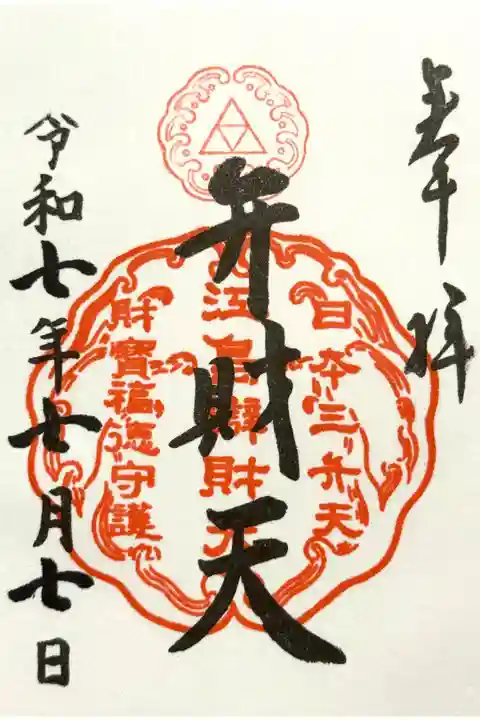 奉拝
日本三弁天
弁財天
江島辨財天
財寶福徳守護
令和七年七月七日